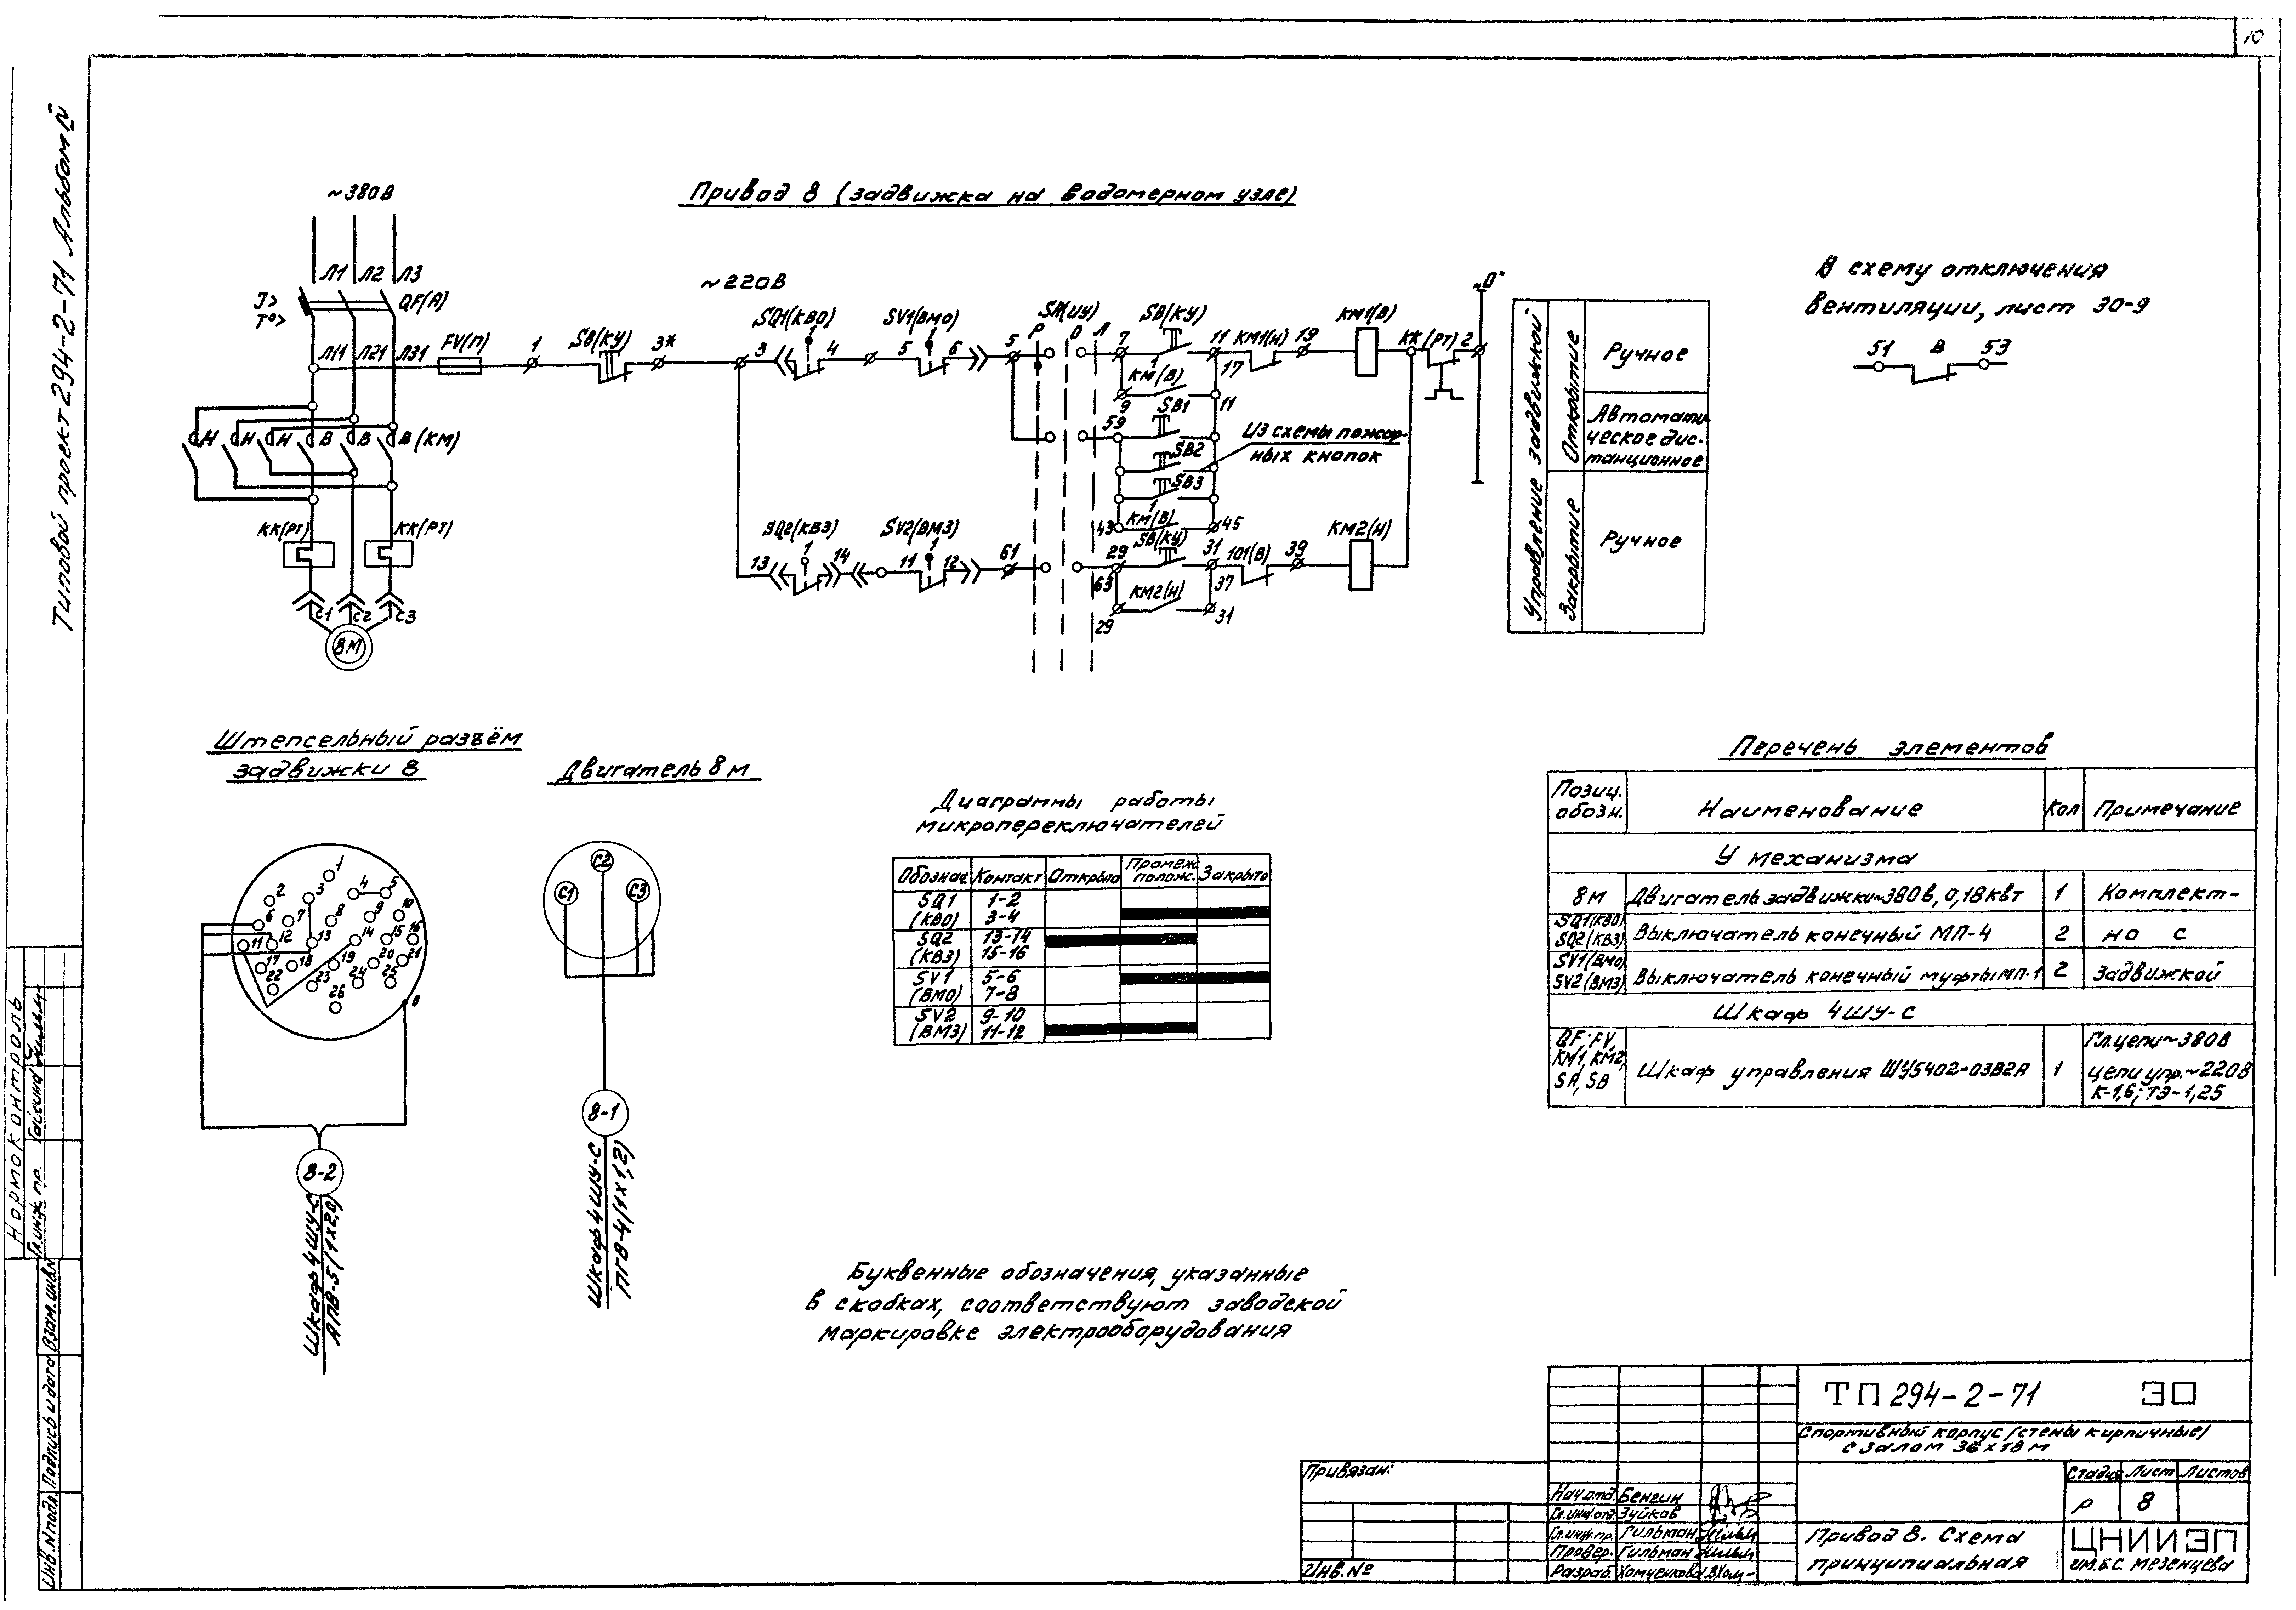 10
Типовой проект 294-2-71 Альбом IV
Привод 8 (задвижка на водомерном узле)
~380В
Л1 Л2 Л3
I>
T°>
QF(А)
Л11 Л21 Л31
FV(П)
1
SB(КУ)
3*
~220В
3
SQ1(КВО)
1
4
SV1(ВМО)
5
1
6
5
SA(ИУ)
Р О А
7
SB(КУ)
1
11
КМ1(Н)
17
19
КМ1(В)
КК(РТ)
2
"О"
КМ(В)
9
11
59
SB1
SB2
SB3
1
Из схемы пожар-
ных кнопок
43
КМ(В)
45
Н Н Н В В В (КМ)
КК(РТ)
КК(РТ)
С1 С2 С3
8М
13
SQ2(КВЗ)
1
14
SV2(ВМЗ)
11
1
12
61
29
63
SB(КУ)
31
101(В)
37
39
КМ2(Н)
КМ2(Н)
29
31
Управление задвижкой
Открытие
Ручное
Автомати-
ческое дис-
танционное
Закрытие
Ручное
В схему отключения
вентиляции, лист ЭО-9
51 В 53
Штепсельный разъём
задвижки 8
1 2 3 4 5 6 7 8 9 10 11 12 13 14 15 16 17 18 19 20 21 22 23 24 25 26
0
8-2
Шкаф 4ШУ-С
АПВ-5(1x2,0)
Двигатель 8м
С1 С2 С3
8-1
Шкаф 4ШУ-С
ПГВ-4(1x1,2)
Диаграммы работы
микропереключателей
Обознач. Контакт Открыто Промеж. полож. Закрыто
SQ1 1-2
(КВО) 3-4
SQ2 13-14
(КВЗ) 15-16
SV1 5-6
(ВМО) 7-8
SV2 9-10
(ВМЗ) 11-12
Буквенные обозначения, указанные
в скобках, соответствуют заводской
маркировке электрооборудования
Перечень элементов
Позиц. обозн. Наименование Кол Примечание
У механизма
8М Двигатель задвижки~380в, 0,18квт 1 Комплект-
SQ1(КВО)
SQ2(КВЗ) Выключатель конечный МП-4 2 но с
SV1(ВМО)
SV2(ВМЗ) Выключатель конечный муфты МП-1 2 задвижкой
Шкаф 4ШУ-С
QF; FV,
КМ1, КМ2,
SA, SB
Шкаф управления ШУ5402-03В2А 1
Гл.цепи~380В
цепи упр.~220В
К-1,6; ТЭ-1,25
ТП 294-2-71 ЭО
Спортивный корпус (стены кирпичные)
с залом 36x18 м
Стадия Лист Листов
р 8
Привод 8. Схема
принципиальная
ЦНИИЭП
им. Б.С. Мезенцева
Нач.отд. Бенгин
Гл.инж.отд. Зуйков
Гл.инж.пр. Гильман
Провер. Гильман
Разраб. Хомченкова
Привязан:
Инв.№
Нормоконтроль
Гл.инж.пр.
Инв.№подл. Подпись и дата Взам.инв.№